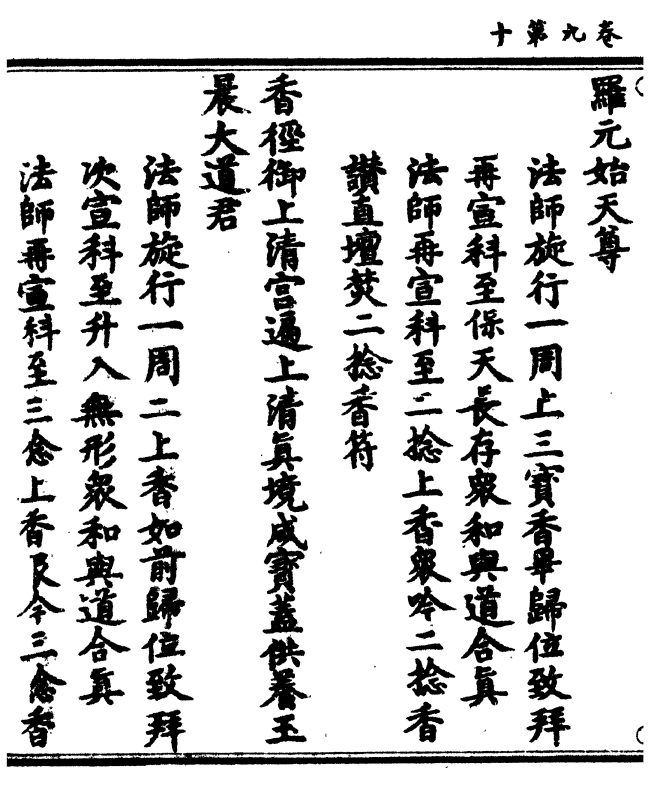 卷九第十
羅元始天尊
法師旋行一周上三寶香畢歸位致拜
再宣科至保天長存眾和與道合眞
法師再宣科至二捻上香眾吟二捻香
讚直壇焚二捻香符
香徑御上清宮遍上清眞境咸寶蓋供養玉
晨大道君
法師旋行一周二上香如前歸位致拜
次宣科至升入無形眾和與道合眞
法師再宣科至三念上香㫔今三念香